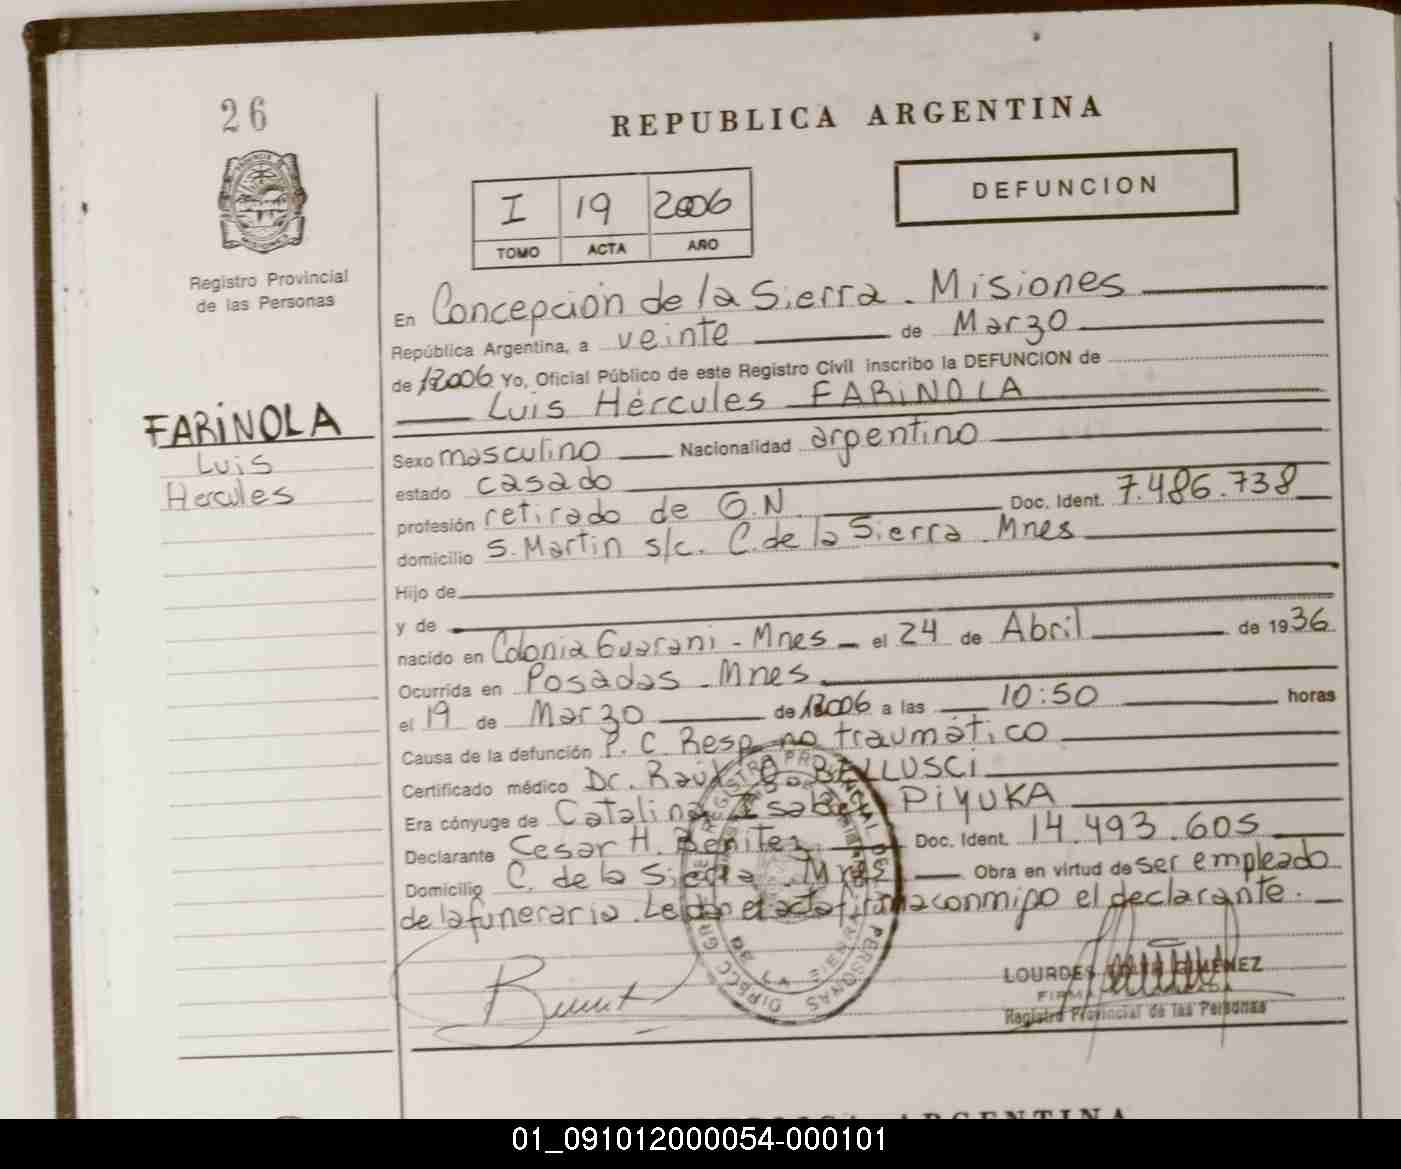 26
REPUBLICA ARGENTINA
DEFUNCION
I 19 2006
TOMO ACTA AÑO
Registro Provincial
de las Personas
En Concepción de la Sierra - Misiones
República Argentina, a veinte de Marzo
de 2006 Yo, Oficial Público de este Registro Civil inscribo la DEFUNCION de
Luis Hércules FARINOLA
FARINOLA
Luis
Hercules
Sexo masculino Nacionalidad argentino
estado casado
profesión retirado de G.N. Doc. Ident. 7.486.738
domicilio S. Martin s/c. C. de la Sierra - Mnes
Hijo de
y de
nacido en Colonia Guarani - Mnes el 24 de Abril de 1936
Ocurrida en Posadas - Mnes
el 19 de Marzo de 2006 a las 10:50 horas
Causa de la defunción P. C. Resp. no traumático
Certificado médico Dr. Raúl BELLUSCI
Era cónyuge de Catalina Isabel PIYUKA
Declarante Cesar H. Benitez Doc. Ident. 14.493.605
Domicilio C. de la Sierra - Mnes Obra en virtud de ser empleado
de la funeraria. Leida el acta firma conmigo el declarante.
LOURDES
Registro Provincial de las Personas
REPUBLICA ARGENTINA
01_091012000054-000101